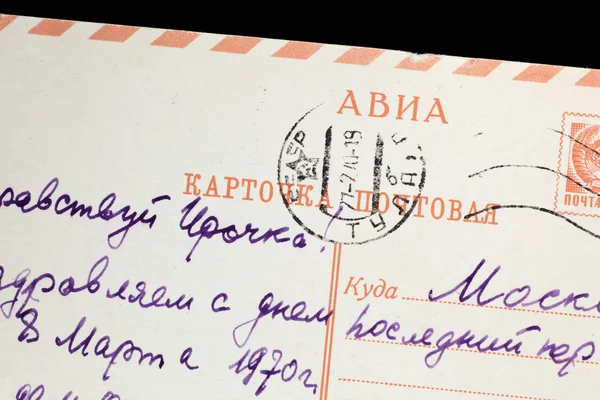 АВИА
КАРТОЧКА ПОЧТОВАЯ
27-2.70-19
ПОЧТА
равствуй Ирочка!
здравляем с днем
8 Марта 1970г.
Куда Моск
последний пер